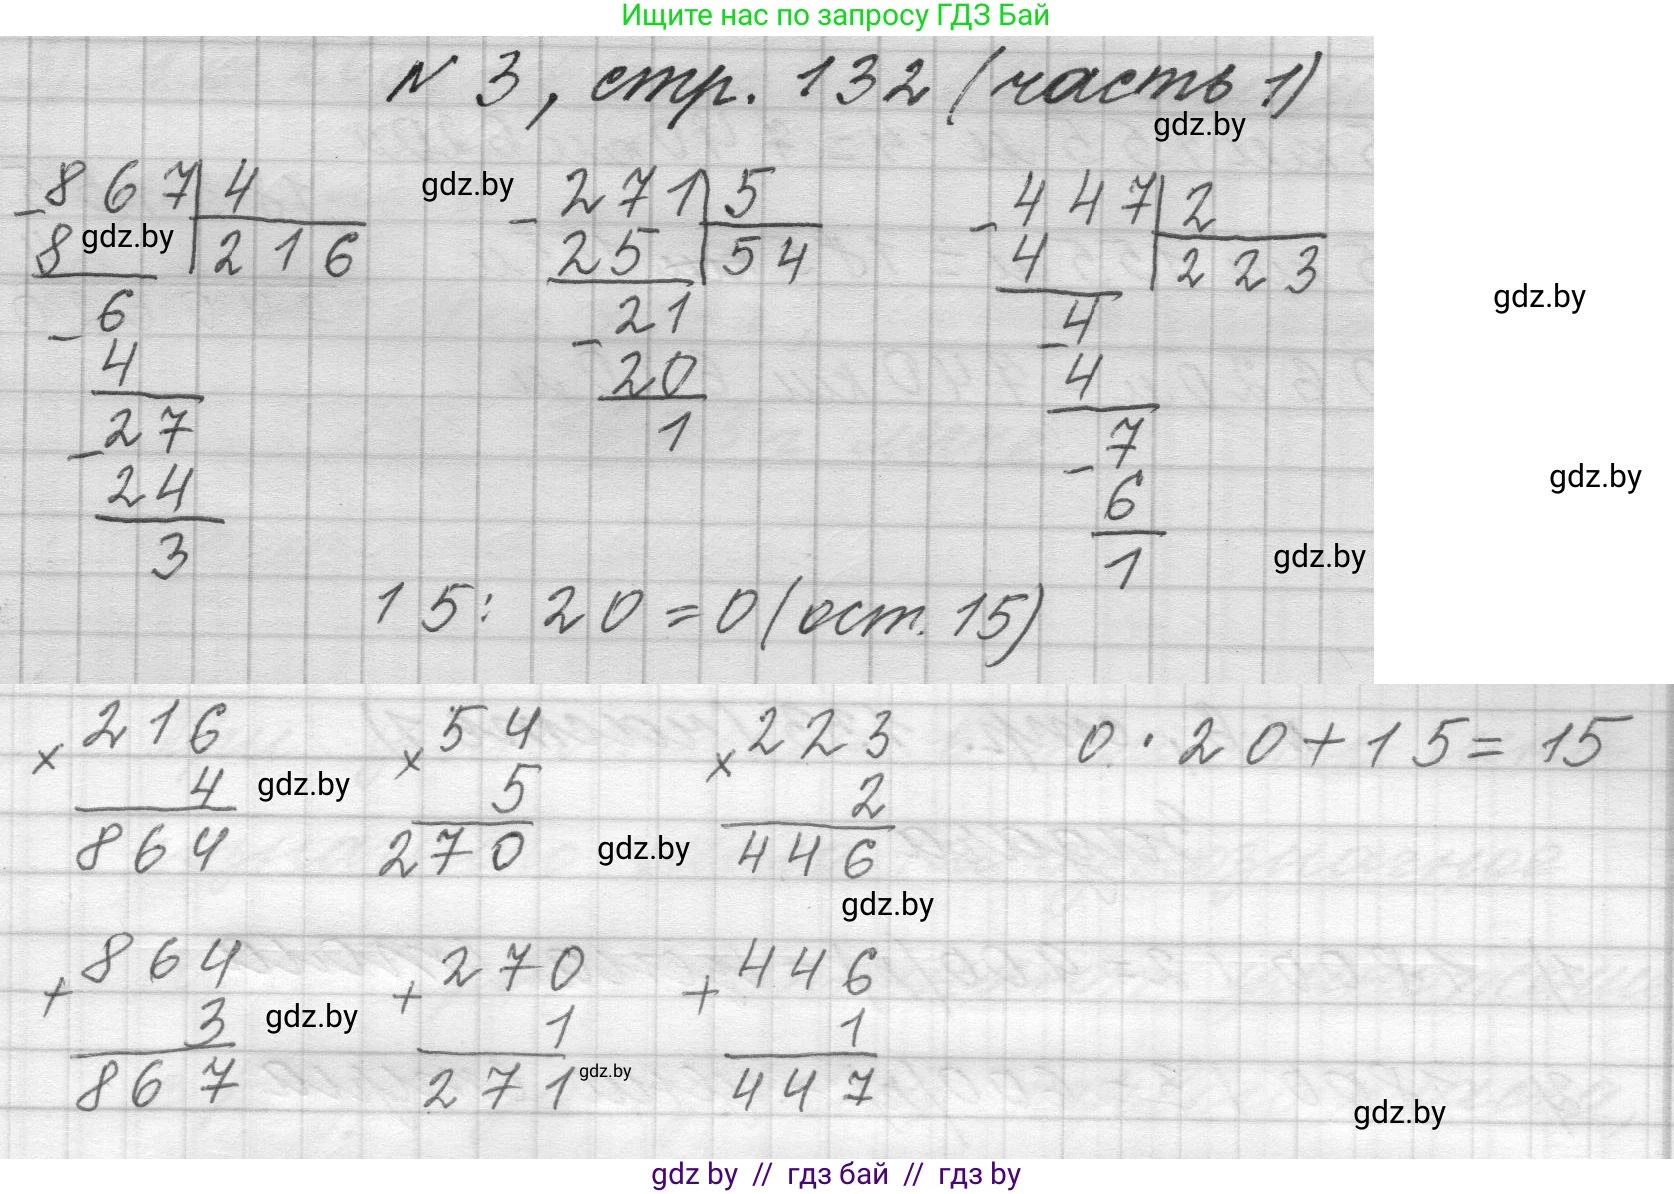 Ищите нас по запросу ГДЗ Бай
№ 3, стр. 132 (часть 1)
gdz.by
867 4
271 5
447 2
gdz.by
8 216
25 54
4 223
gdz.by
6
21
4
gdz.by
4
20
4
27
1
7
gdz.by
24
6
3
1
gdz.by
15 : 20 = 0 (ост. 15)
216
54
223
0 · 20 + 15 = 15
×
×
×
4
5
2
gdz.by
864
270
446
gdz.by
gdz.by
864
270
446
+
+
+
3
1
1
gdz.by
867
271
447
gdz.by
gdz.by
gdz by // гдз бай // гдз by